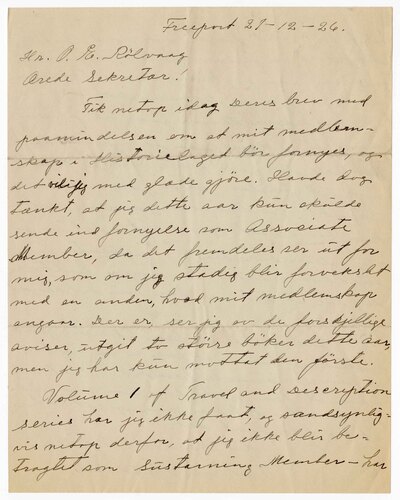 Freeport 27-12-26.
Hr. O. E. Rölvaag
Ærede Sekretær!
Fik netop idag Deres brev med
paamindelsen om at mit medlem-
skap i Historielaget bör fornyes, og
det vil jeg med glæde gjöre. Havde dog
tænkt, at jeg dette aar kun skulde
sende ind fornyelse som Assosiate
Member, da det fremdeles ser ut for
mig, som om jeg stadig blir forvekslet
med en anden, hvad mit medlemskap
angaar. Der er, ser jeg av de forskjellige
aviser, utgit to större böker dette aar,
men jeg har kun mottat den förste.
Volume 1 of Travel and Description
series har jeg ikke faat, og sandsynlig-
vis netop derfor, at jeg ikke blir be-
tragtet som Sustaining Member - har